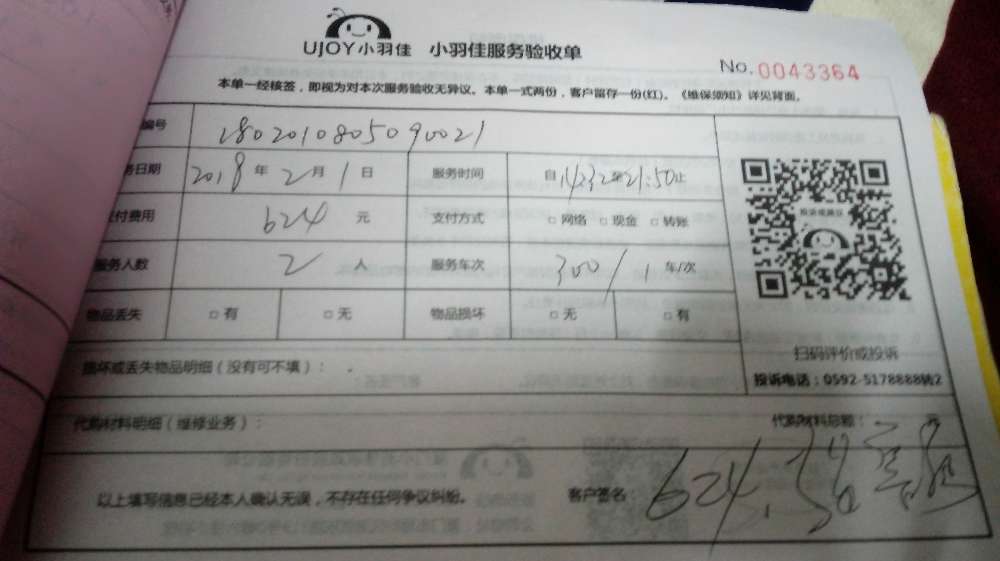 UJOY小羽佳 小羽佳服务验收单
No. 0043364
本单一经核签，即视为对本次服务验收无异议。本单一式两份，客户留存一份(红)。《维保须知》详见背面。
编号 2802010805090021
务日期 2018 年 2 月 1 日 服务时间 自 14:32 至 21:50 止
付费用 624 元 支付方式 □ 网络 □ 现金 □ 转账
服务人数 2 人 服务车次 300/1 车/次
物品丢失 □ 有 □ 无 物品损坏 □ 无 □ 有
扫码评价或投诉
损坏或丢失物品明细（没有可不填）：
投诉电话：0592-5178888转2
代购材料明细（维修业务）： 代购材料总额： 元
以上填写信息已经本人确认无误，不存在任何争议纠纷。 客户签名： 624.